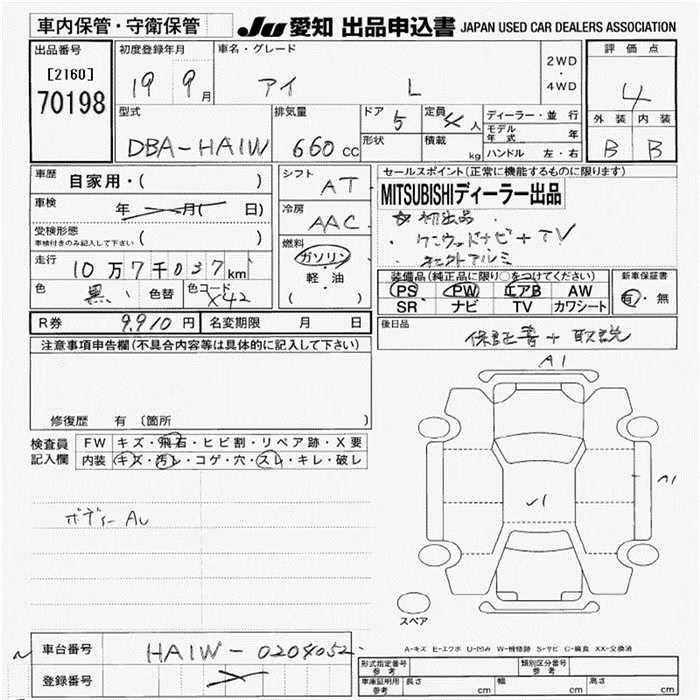 車内保管・守衛保管 JU 愛知 出品申込書 JAPAN USED CAR DEALERS ASSOCIATION
出品番号 初度登録年月 車名・グレード 2WD・4WD 評価点
[2160] 70198 19 9月 アイ L 4
型式 排気量 ドア 5 定員 4人 ディーラー・並行 外装 内装
DBA-HA1W 660cc 形状 積載 kg モデル年式 年 B B
ハンドル 左・右
車歴 自家用・( ) シフト AT セールスポイント(正常に機能するものに限ります)
車検 年 月( 日) 冷房 AAC MITSUBISHIディーラー出品
受検形態 車検付きのみ記入して下さい ( ) ☆ 初出品
・ケンウッドナビ+TV
・社外アルミ
走行 10万7千037km 燃料 ガソリン・軽・油 ( )
装備品(純正品に限り○をつけてください) 新車保証書
色 黒 色替 色コード X42 PS PW エアB AW 有・無
SR ナビ TV カワシート
R券 9,910円 名変期限 月 日 後日品 保証書+取説
注意事項申告欄(不具合内容等は具体的に記入して下さい)
修復歴 有 (箇所 )
検査員記入欄 FW キズ・飛石・ヒビ割・リペア跡・X要
内装 キズ・汚レ・コゲ・穴・スレ・キレ・破レ
A1
A1
✓1
ボディー AU
スペア
A-キズ E-エクボ U-凹み W-補修跡 S-サビ C-腐食 XX-交換済
車台番号 HA1W-0204052
登録番号
形式指定番号 参考 類別区分番号 参考
車庫証明用 参考 長さ cm 幅 cm 高さ cm